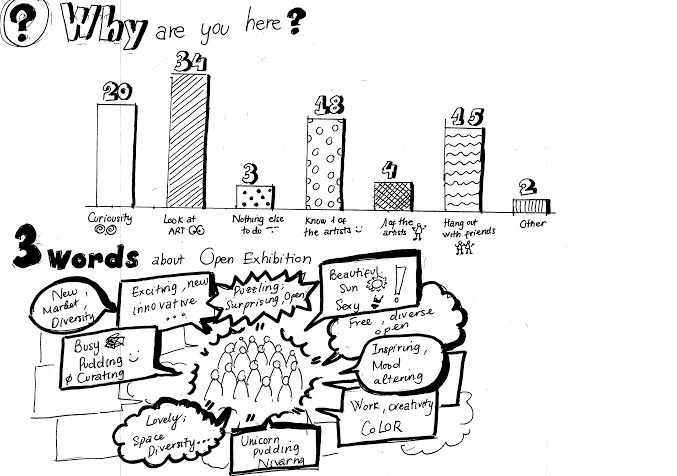 ? Why are you here?
20
34
3
18
4
15
2
Curiousity
Look at
ART
Nothing else
to do
Know 1 of
the artists
1 of the
artists
Hang out
with friends
Other
3 words about Open Exhibition
New,
Market,
Diversity
Exciting, new
innovative
...
Puzzling,
Surprising, Open
Beautiful
Sun
Sexy
!
Free, diverse
open
Busy
Pudding
Curating
Inspiring,
Mood
altering
Work, creativity
COLOR
Lovely,
Space
Diversity...
Unicorn
pudding
Nivarna